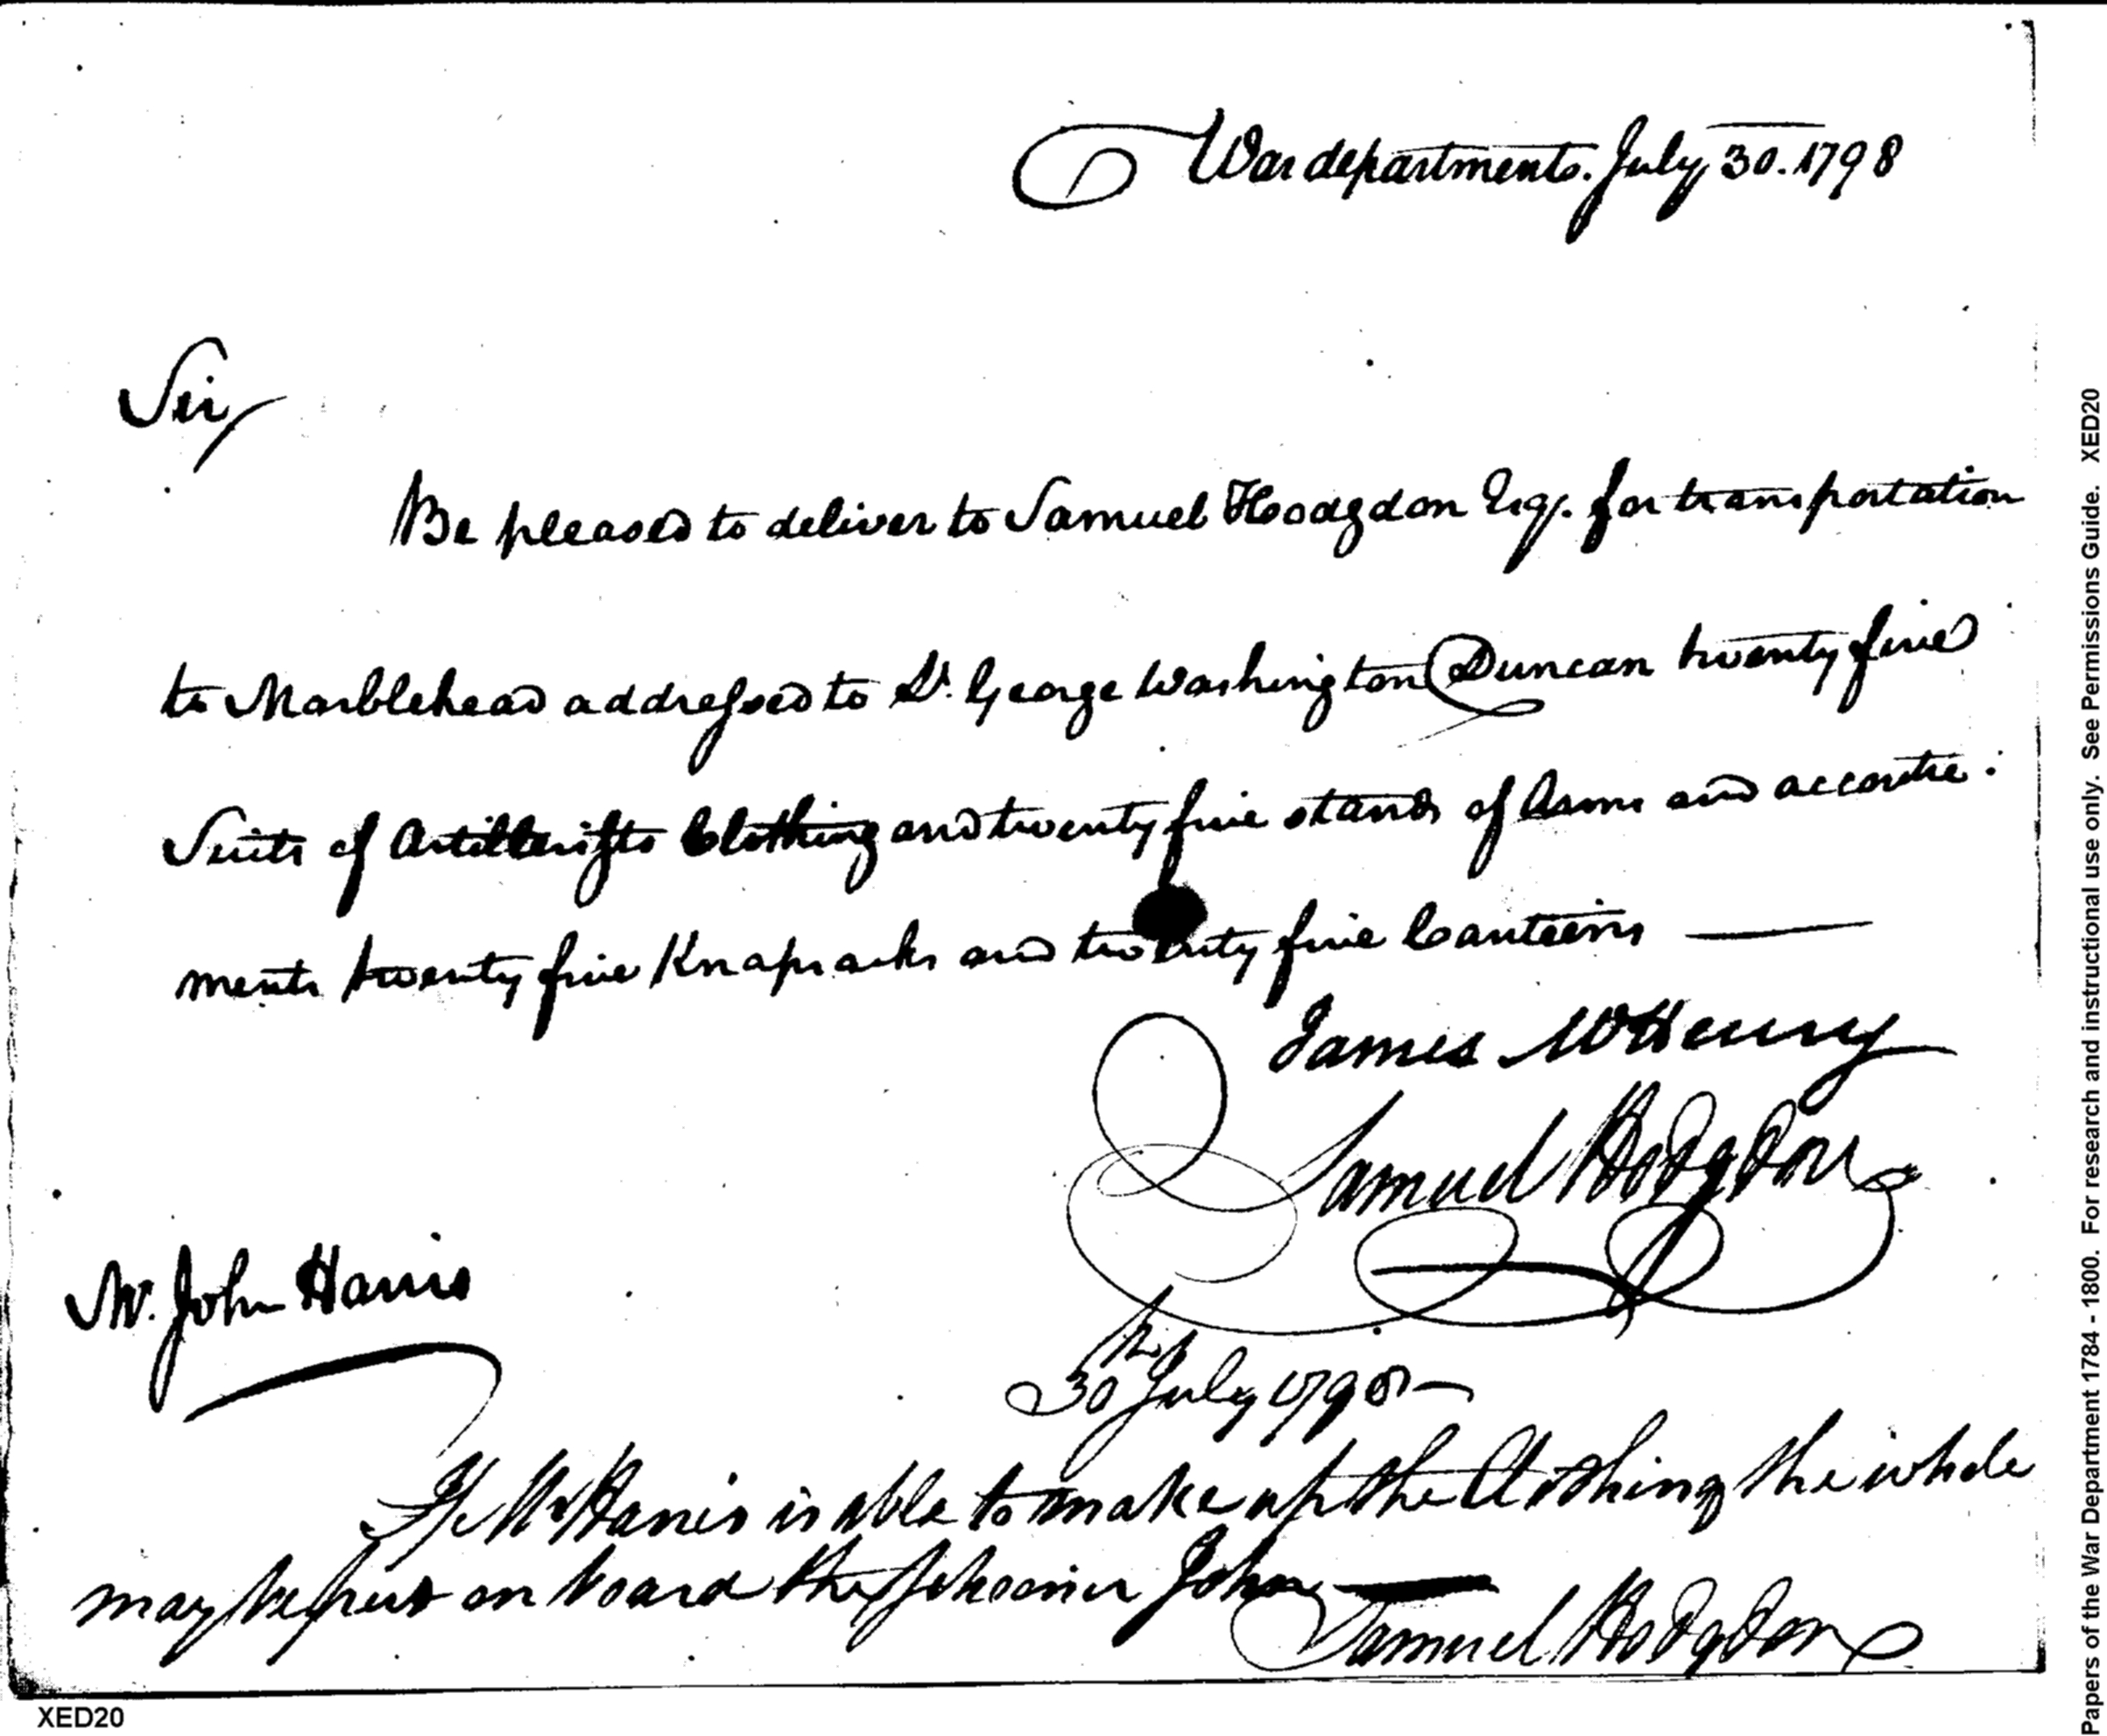 War departments. July 30. 1798
Sir,
Be pleased to deliver to Samuel Hoodgdon Esqr. for transportation
to Marblehead addressed to Lt. George Washington Duncan twenty five
Suits of Artillerists Clothing and twenty five stands of Arms and accoutre:
ments twenty five Knapsacks and twenty five Canteens
James McHenry
Samuel Hodgdon
Mr. John Harris
30th July 1798
If Mr Harris is able to make up the Clothing the whole
may be put on board the Schooner John
Samuel Hodgdon
XED20
Papers of the War Department 1784 - 1800. For research and instructional use only. See Permissions Guide. XED20